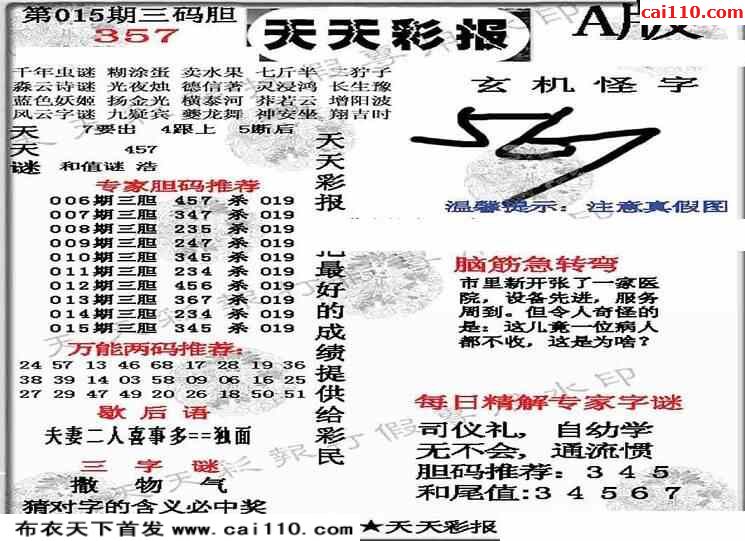 第015期三码胆
357
天天彩报
A版
cai110.com
千年虫谜 糊涂蛋 卖水果 七斤半 二狞子
淼云诗谜 光夜烛 德信著 灵浸鸿 长生豫
蓝色妖姬 扬金光 横泰河 莽若云 增阳波
风云字谜 九疑宾 夔龙舞 神安坐 翔吉时
天天谜
7要出 4跟上 5断后
457
和值谜 浩
专家胆码推荐
006期三胆 457 杀 019
007期三胆 347 杀 019
008期三胆 235 杀 019
009期三胆 247 杀 019
010期三胆 345 杀 019
011期三胆 234 杀 019
012期三胆 456 杀 019
013期三胆 367 杀 019
014期三胆 234 杀 019
015期三胆 345 杀 019
万能两码推荐:
24 57 13 46 68 17 28 19 36
38 39 14 03 58 09 06 16 25
27 29 47 49 20 26 18 50 51
歇后语
夫妻二人喜事多==独面
三字谜
撒 物 气
猜对字的含义必中奖
天天彩报
把最好的成绩提供给彩民
玄机怪字
567
温馨提示: 注意真假图
脑筋急转弯
市里新开张了一家医
院, 设备先进, 服务
周到。但令人奇怪的
是: 这儿竟一位病人
都不收, 这是为啥?
每日精解专家字谜
司仪礼, 自幼学
无不会, 通流惯
胆码推荐: 3 4 5
和尾值: 3 4 5 6 7
布衣天下首发 www.cai110.com ★天天彩报